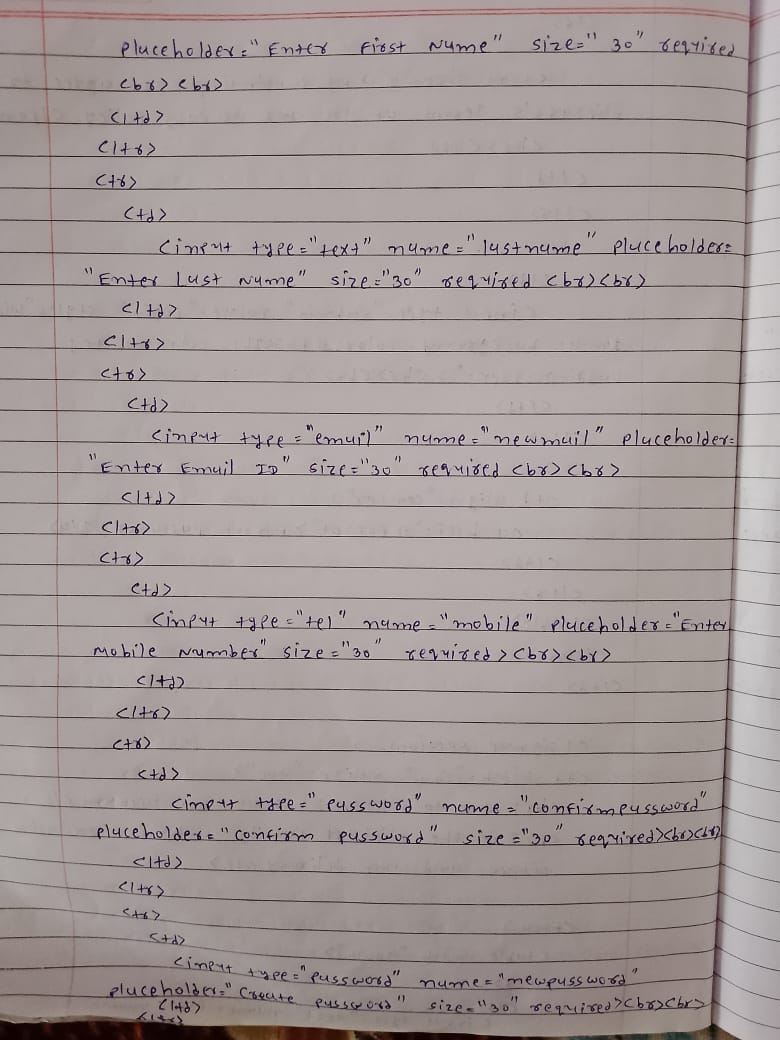 placeholder="Enter First Name" size="30" required
<br><br>
</td>
</tr>
<tr>
<td>
<input type="text" name="lastname" placeholder=
"Enter Last Name" size="30" required <br><br>
</td>
</tr>
<tr>
<td>
<input type="email" name="newmail" placeholder=
"Enter Email ID" size="30" required <br><br>
</td>
</tr>
<tr>
<td>
<input type="tel" name="mobile" placeholder="Enter
Mobile Number" size="30" required><br><br>
</td>
</tr>
<tr>
<td>
<input type="password" name="confirmpassword"
placeholder="confirm password" size="30" required><br><br>
</td>
</tr>
<tr>
<td>
<input type="password" name="newpassword"
placeholder="Create password" size="30" required><br><br>
</td>
</tr>